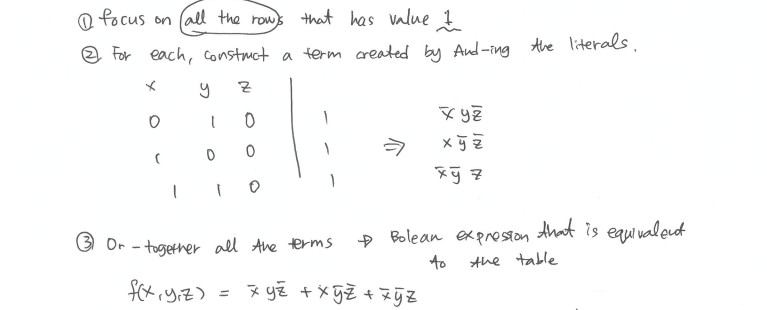 ① focus on all the rows that has value 1
② For each, construct a term created by And-ing the literals.
x y z
0 1 0 | 1 ⇒ x̄ y z̄
1 0 0 | 1 x ȳ z̄
1 1 0 | 1 x̄ ȳ z
③ Or-together all the terms → Bolean expression that is equivalent
to the table
f(x,y,z) = x̄ y z̄ + x ȳ z̄ + x̄ ȳ z